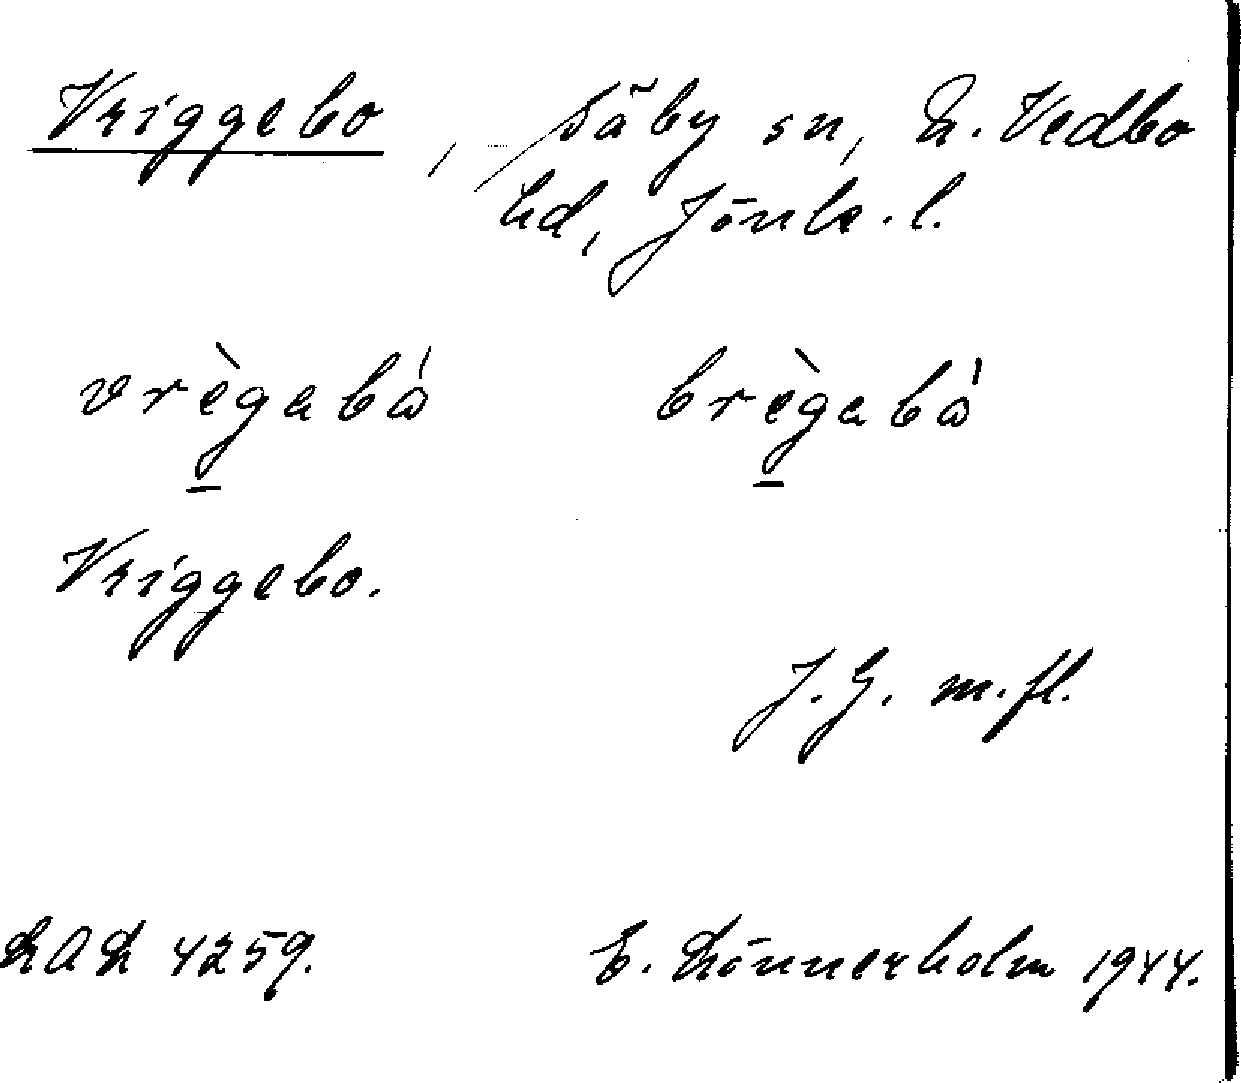 Vriggebo, Säby sn, N. Vedbo
hd, Jönk. l.
vrègabǻ brègabǻ
Vriggebo.
J. G. m. fl.
LAL 4259. E. Lönnerholm 1944.